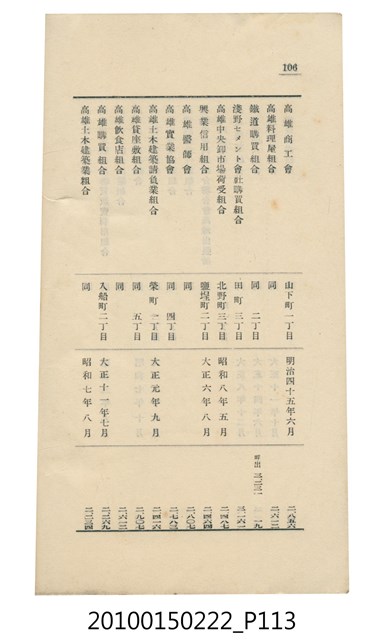 106
高雄商工會 山下町一丁目 明治四十五年六月 二、八五六
高雄料理屋組合 同 二、六一二
鐵道購買組合 同 二丁目 呼出
淺野セメント會社購買組合 田町三丁目
高雄中央卸市場荷受組合 北野町三丁目 昭和八年五月 二、四八七
興業信用組合 鹽埕町二丁目 大正六年八月 二、六六四
高雄醫師會 同 二、八〇七
高雄實業協會 同 四丁目 二、七八二
高雄土木建築請負業組合 榮町二丁目 大正元年九月 二、三四六
高雄貸座敷組合 同 五丁目 二、九〇七
高雄飲食店組合 同 二、六一二
高雄購買組合 入船町二丁目 大正十一年七月 二、二六九
高雄土木建築業組合 同 昭和七年八月 二、二三四
20100150222_P113